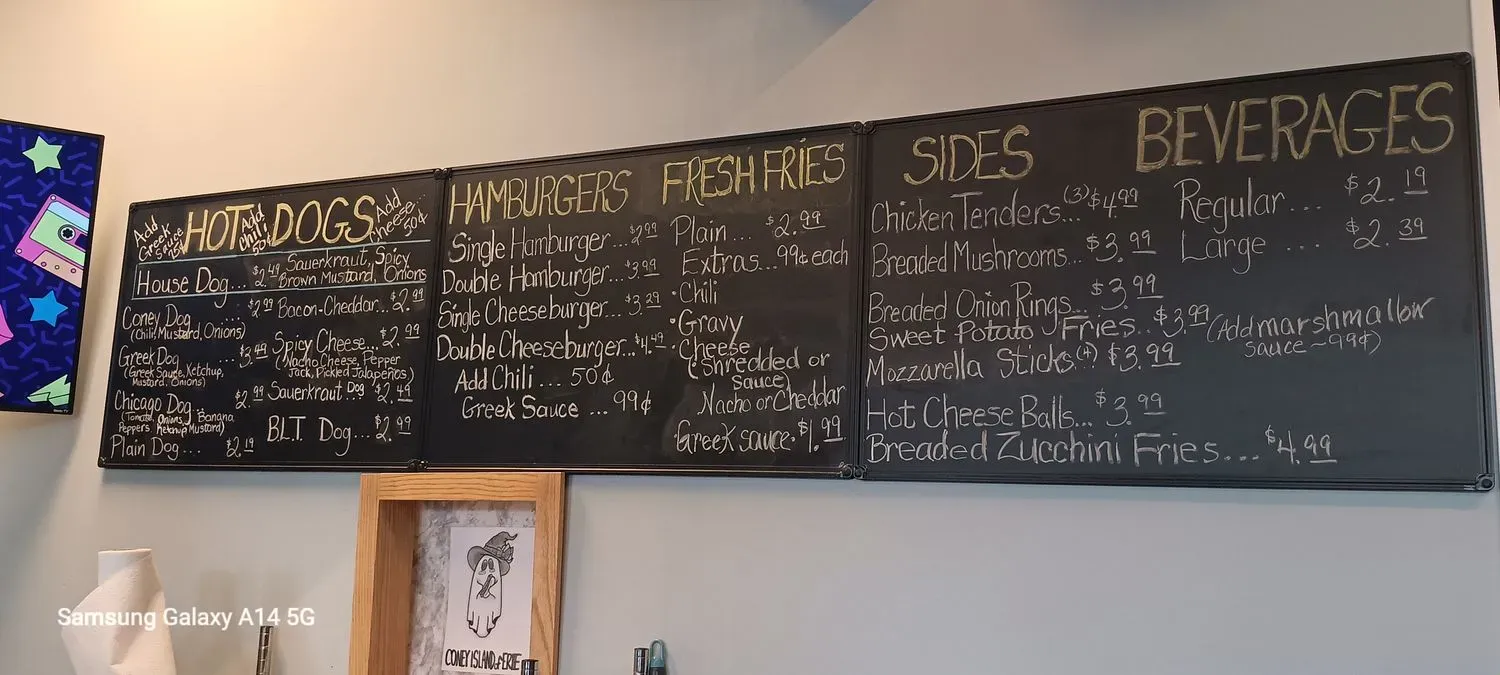 Add Greek Sauce
HOT DOGS
Add Chili 50¢
Add Cheese... 50¢
House Dog... $2.49 Sauerkraut, Spicy
Brown Mustard, Onions
Coney Dog ... $2.99
(Chili, Mustard, Onions)
Greek Dog ... $3.49
(Greek Sauce, Ketchup,
Mustard, Onions)
Chicago Dog... $2.99
(Tomato, Onions, Banana
Peppers, Ketchup Mustard)
Plain Dog... $2.19
Bacon-Cheddar... $2.99
Spicy Cheese... $2.99
(Nacho Cheese, Pepper
Jack, Pickled Jalapeños)
Sauerkraut Dog ... $2.49
B.L.T. Dog... $2.99
HAMBURGERS
Single Hamburger... $2.99
Double Hamburger... $3.99
Single Cheeseburger... $3.29
Double Cheeseburger... $4.49
Add Chili ... 50¢
Greek Sauce ... 99¢
FRESH FRIES
Plain ... $2.99
Extras... 99¢ each
•Chili
•Gravy
•Cheese
(Shredded or
Sauce)
Nacho or Cheddar
•Greek sauce • $1.99
SIDES
Chicken Tenders... (3) $4.99
Breaded Mushrooms... $3.99
Breaded Onion Rings... $3.99
Sweet Potato Fries... $3.99 (Add marshmallow
sauce ~ 99¢)
Mozzarella Sticks (4) $3.99
Hot Cheese Balls... $3.99
Breaded Zucchini Fries.... $4.99
BEVERAGES
Regular... $2.19
Large ... $2.39
CONEY ISLAND of ERIE
Samsung Galaxy A14 5G